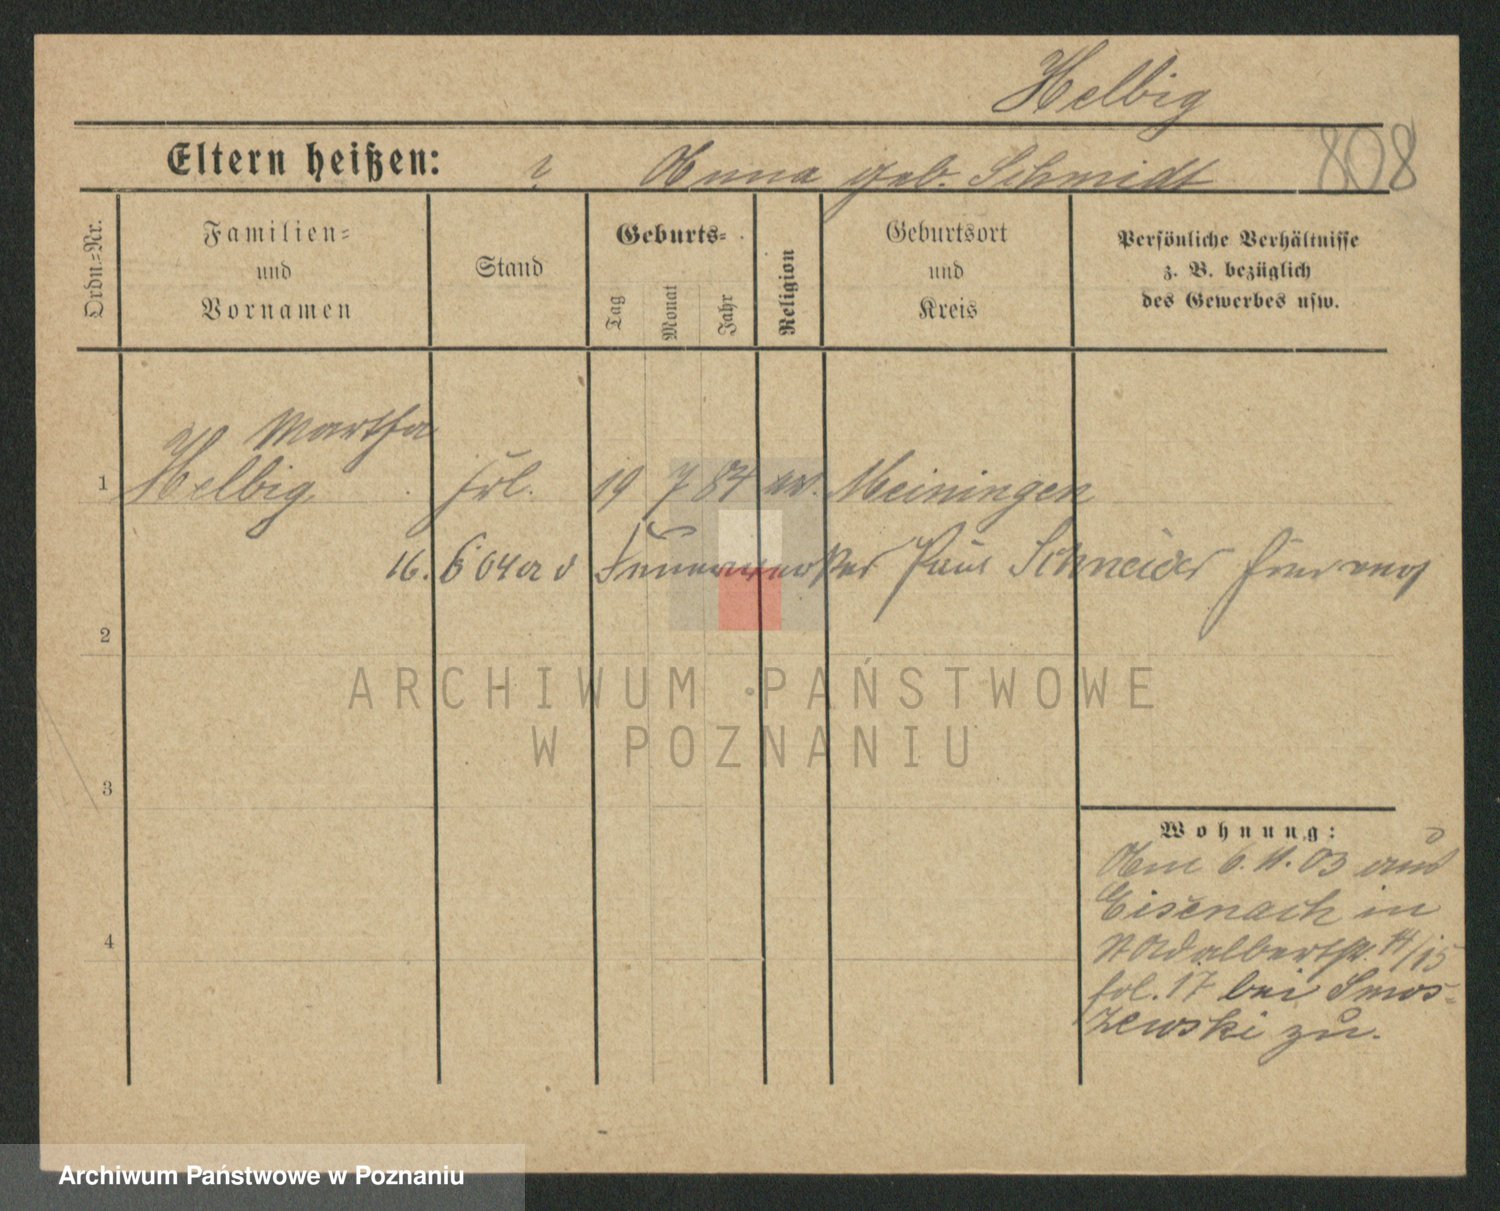 Helbig
808
Eltern heißen: ? Anna geb. Schmidt
Ordn.=Nr.
Familien=
und
Vornamen
Stand
Geburts=
Tag
Monat
Jahr
Religion
Geburtsort
und
Kreis
Persönliche Verhältnisse
z. B. bezüglich
des Gewerbes usw.
Martha
1 Helbig frl. 19 7 84 ev. Meiningen
16. 6 04 Feuerwerker Paul Schneider
2
ARCHIWUM PAŃSTWOWE
W POZNANIU
3
Wohnung:
Am 6. 11. 03 aus
Eisenach in
St Adalbertstr. 14/15
fol. 17 bei Smos=
zewski zu.
4
Archiwum Państwowe w Poznaniu